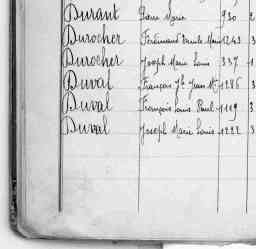 Durant Pierre Marie 930 2
Durocher Ferdinand Emile Marie 1243 3
Durocher Joseph Marie Louis 337 1
Duval François Jn Jean Mie 1286 3
Duval François Louis Paul 1119 3
Duval Joseph Marie Louis 1222 3